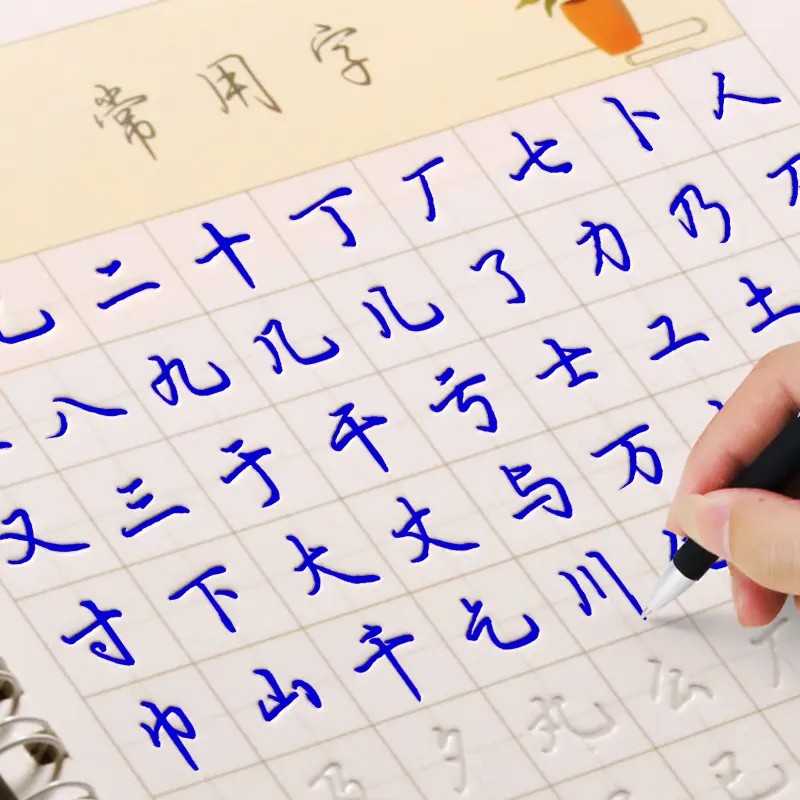 常用字
乙 二 十 丁 厂 七 卜 人
八 九 几 儿 了 力 乃
又 三 于 干 亏 士 工 土
寸 下 大 丈 与 万
巾 山 千 乞 川
夕
已